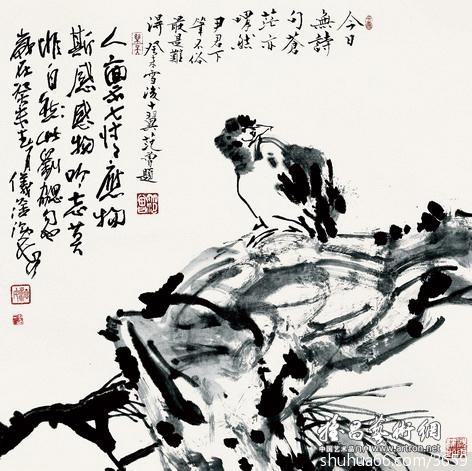 今日
無詩
句蒼
茫亦
然
尹君下
筆不俗
最是難
得 癸未雪後十翼范曾題
人禀七情應物
斯感感物吟志莫
非自然此劉勰句也
歲在癸未
雅昌藝術網
中国艺术品 www.artron.net